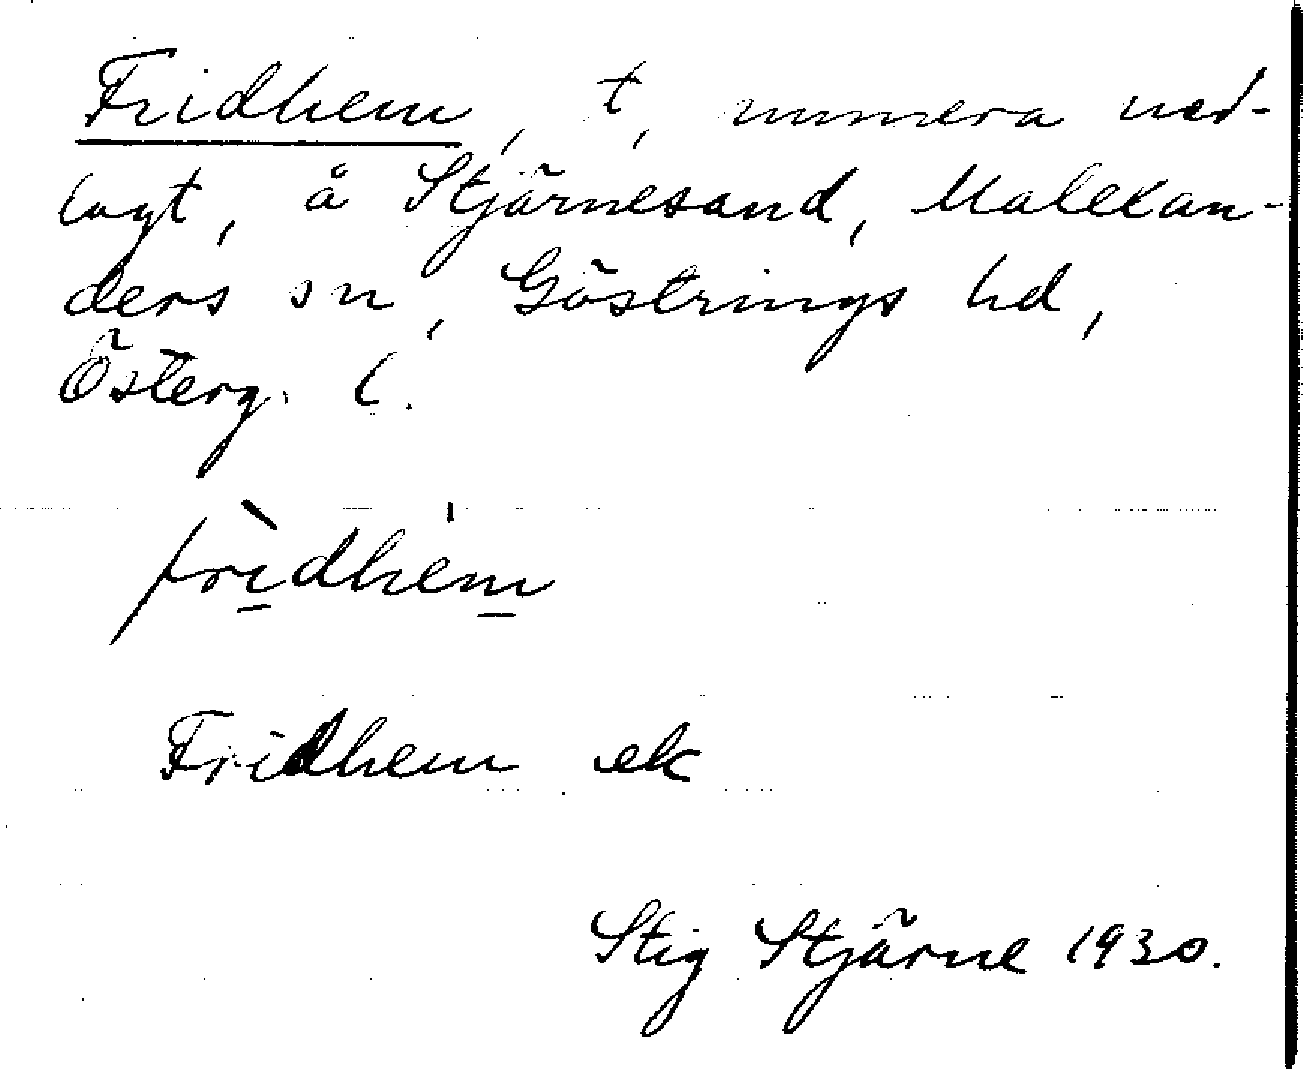 Fridhem, t, numera ned-
lagt, å Stjärnesand, Malexan-
ders sn, Göstrings hd,
Österg. l.
fri̲dhem̲
Fridhem ek
Stig Stjärne 1930.